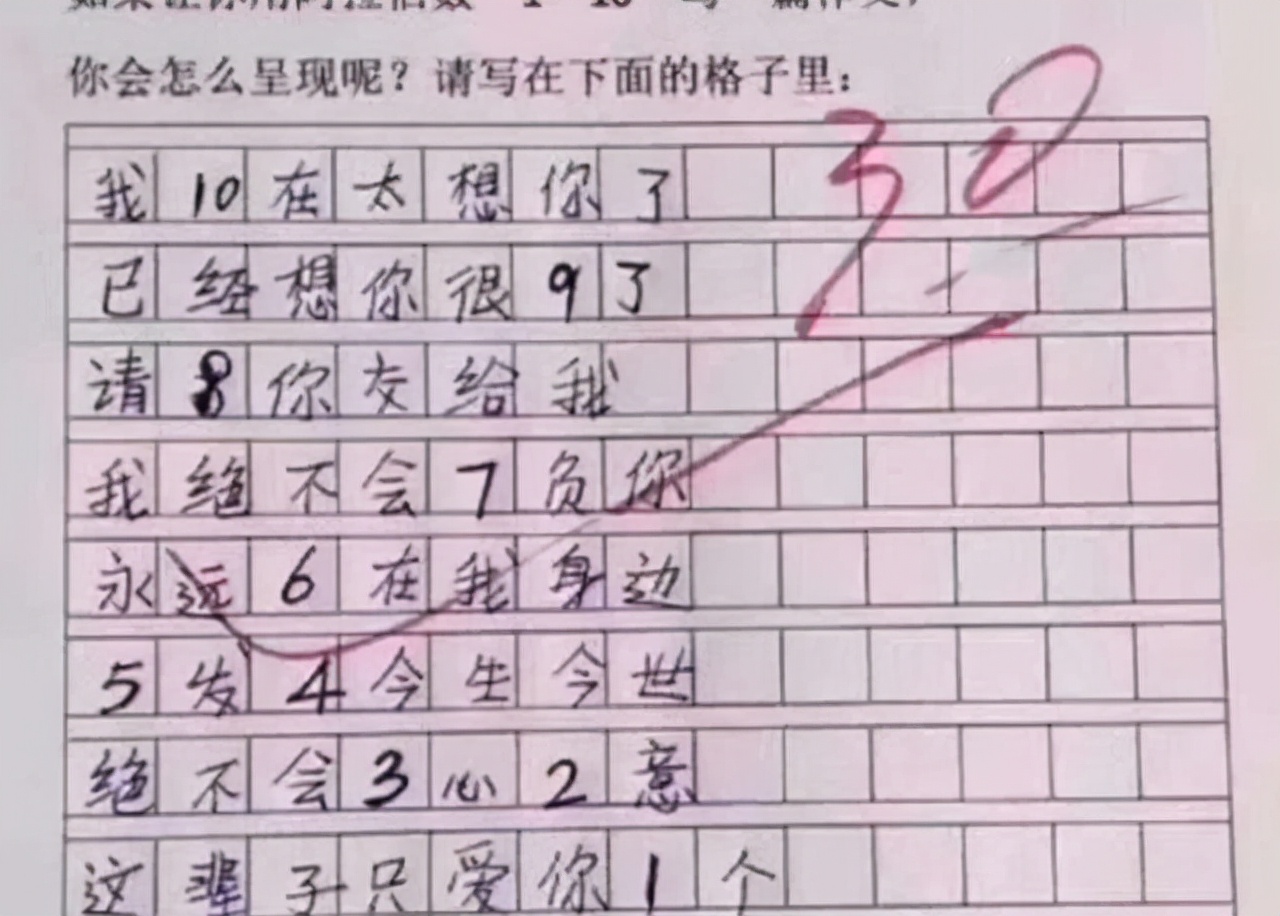 如果让你用阿拉伯数"1-10"写一篇作文,
你会怎么呈现呢？请写在下面的格子里：
30
我10在太想你了
已经想你很9了
请8你交给我
我绝不会7负你
永远6在我身边
5发4今生今世
绝不会3心2意
这辈子只爱你1个